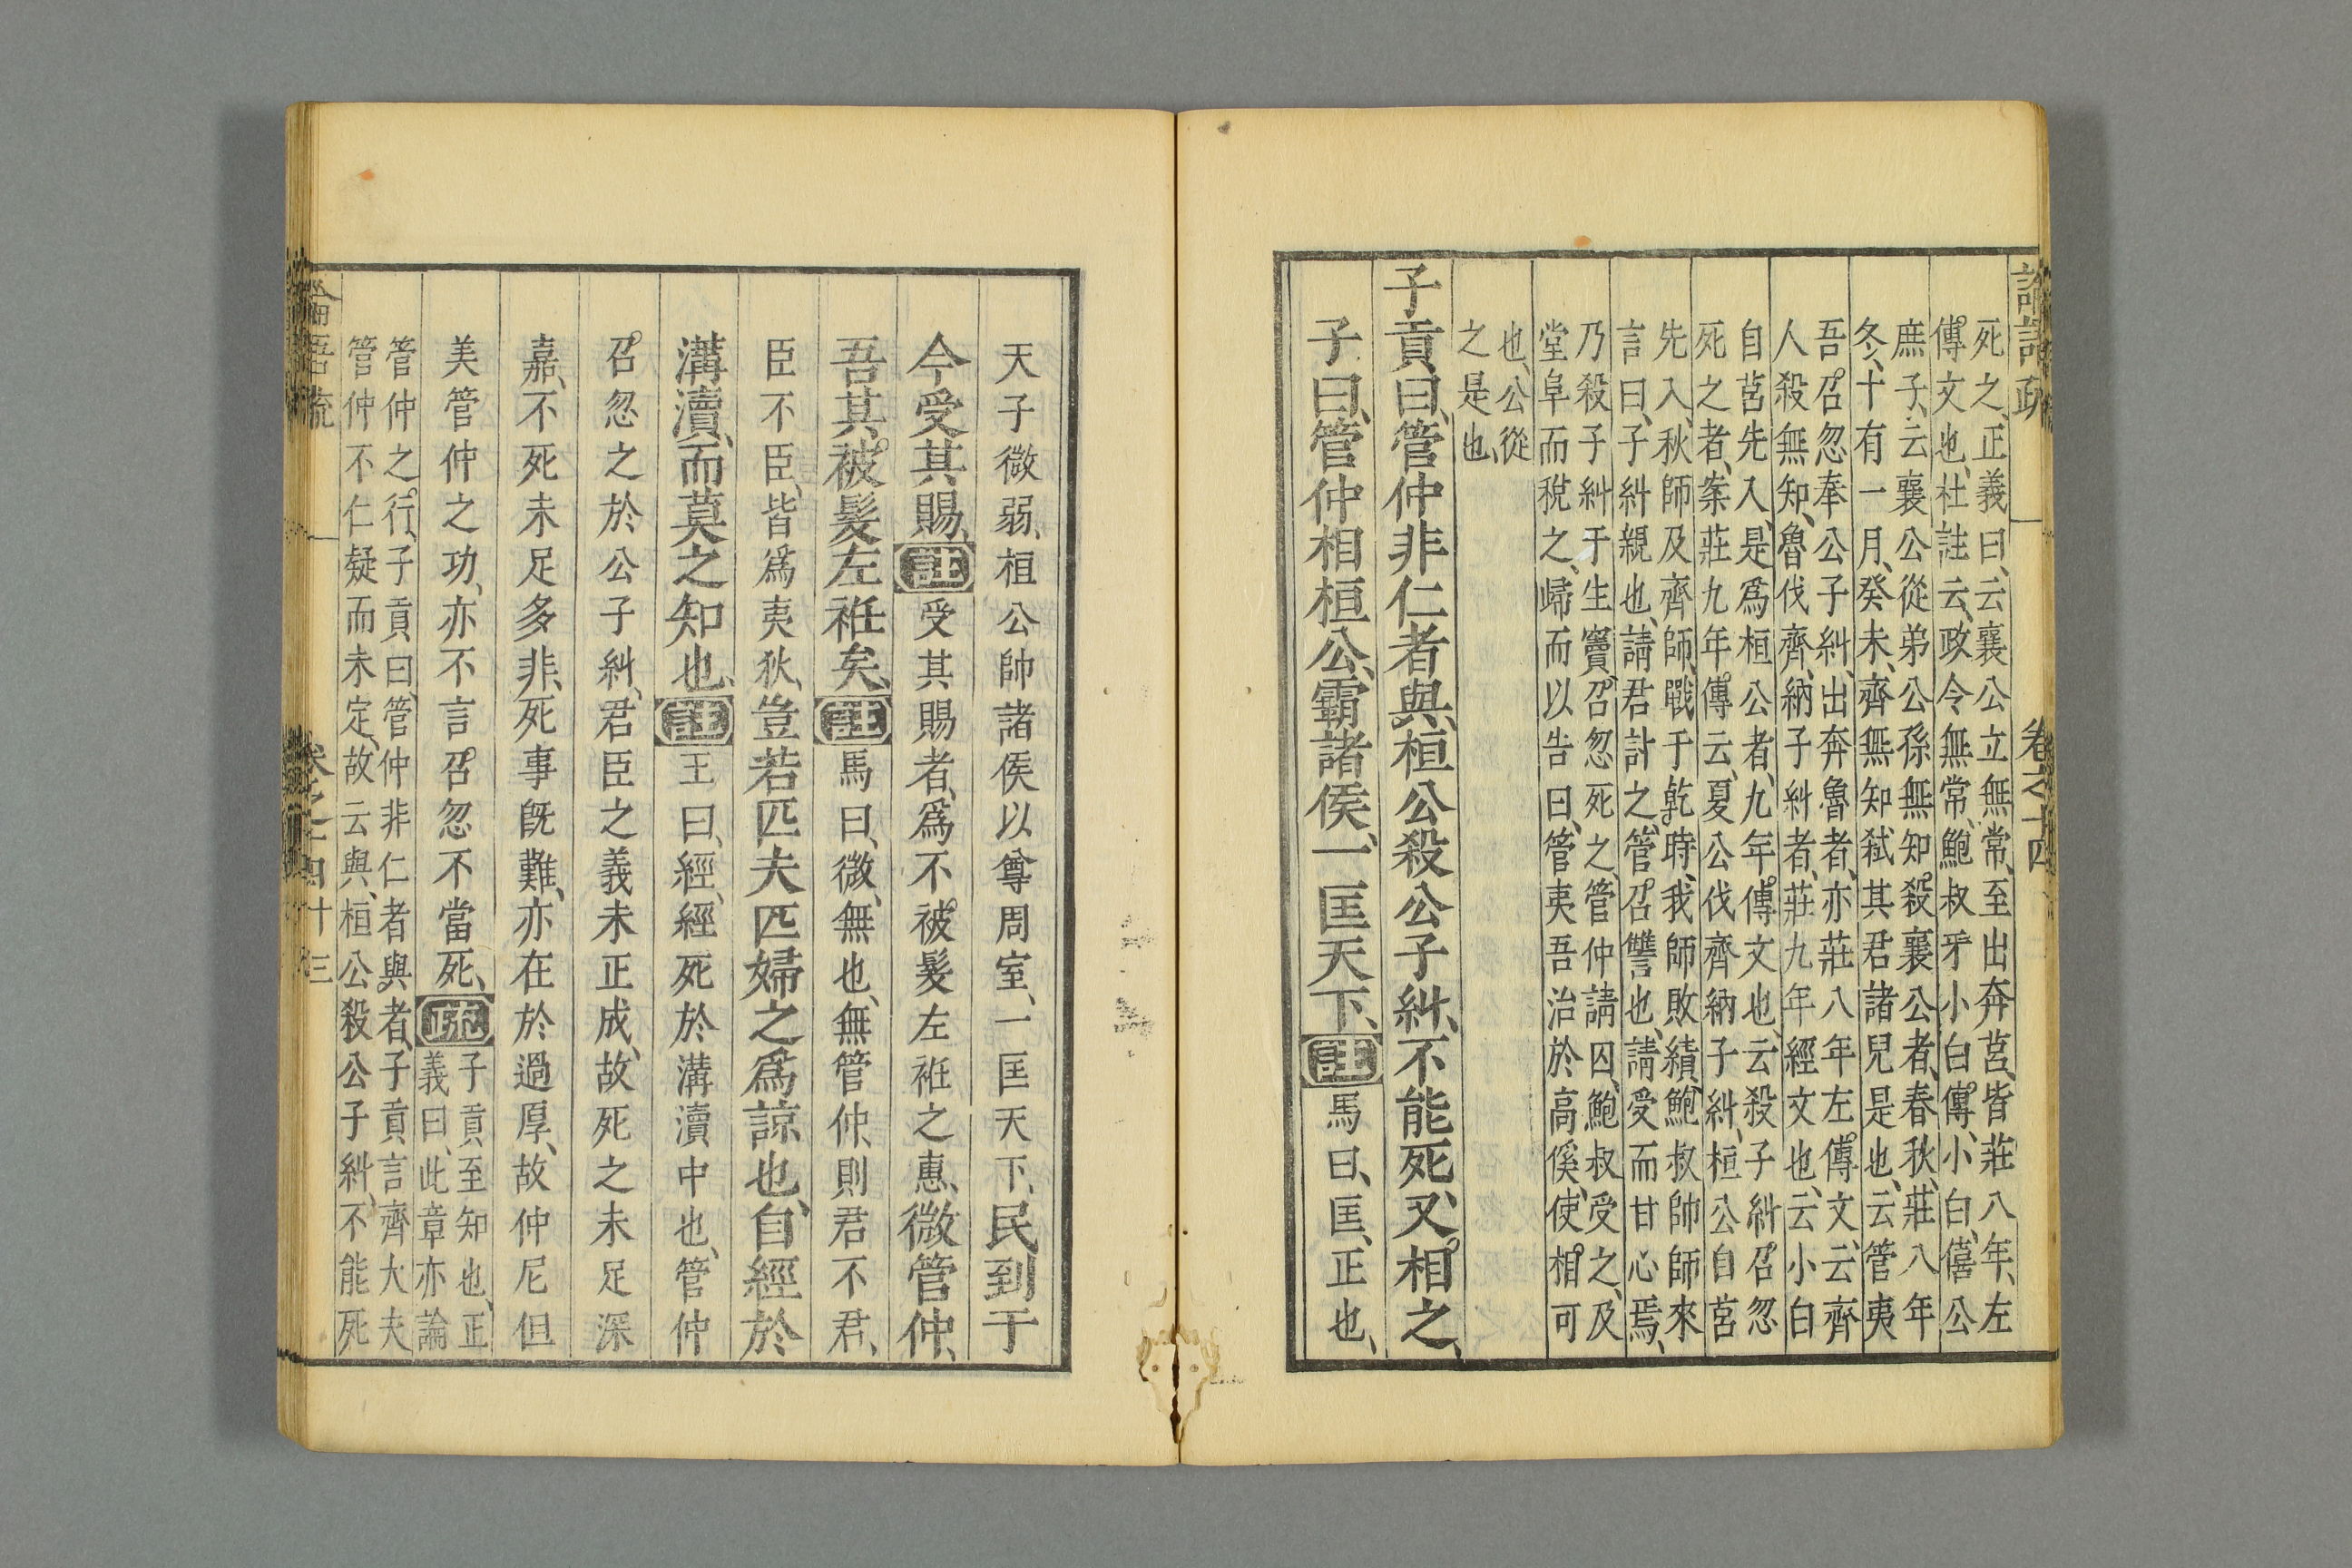 論語疏 卷之十四
死之、正義曰、云襄公立無常、至出奔莒、皆莊八年、左
傳文也、杜註云、政令無常、鮑叔牙小白傳、小白、僖公
庶子、云襄公從弟公孫無知殺襄公者、春秋、莊八年
冬、十有一月、癸未、齊無知弒其君諸兒是也、云管夷
吾召忽奉公子糾、出奔魯者、亦莊八年左傳文、云齊
人殺無知、魯伐齊、納子糾者、莊九年經文也、云小白
自莒先入、是爲桓公者、九年傳文也、云殺子糾召忽
死之者、案莊九年傳云、夏公伐齊納子糾、桓公自莒
先入、秋師及齊師、戰于乾時、我師敗績、鮑叔帥師來
言曰、子糾親也、請君討之、管召讐也、請受而甘心焉、
乃殺子糾于生竇、召忽死之、管仲請囚、鮑叔受之、及
堂阜而稅之、歸而以告曰、管夷吾治於高傒、使相可
也、公從
之是也、
子貢曰、管仲非仁者與、桓公殺公子糾、不能死、又相之、
子曰、管仲相桓公、霸諸侯、一匡天下、註馬曰、匡、正也、
天子微弱、桓公帥諸侯以尊周室、一匡天下、民到于
今受其賜、註受其賜者、爲不被髮左衽之惠、微管仲、
吾其被髮左衽矣、註馬曰、微、無也、無管仲、則君不君、
臣不臣、皆爲夷狄、豈若匹夫匹婦之爲諒也、自經於
溝瀆、而莫之知也、註王曰、經、經死於溝瀆中也、管仲
召忽之於公子糾、君臣之義未正成、故死之未足深
嘉、不死未足多非、死事既難、亦在於過厚、故仲尼但
美管仲之功、亦不言召忽不當死、疏子貢至知也、正
義曰、此章亦論
管仲之行、子貢曰、管仲非仁者與者、子貢言齊大夫
管仲不仁疑而未定、故云與、桓公殺公子糾、不能死
論語疏 卷之十四 十三